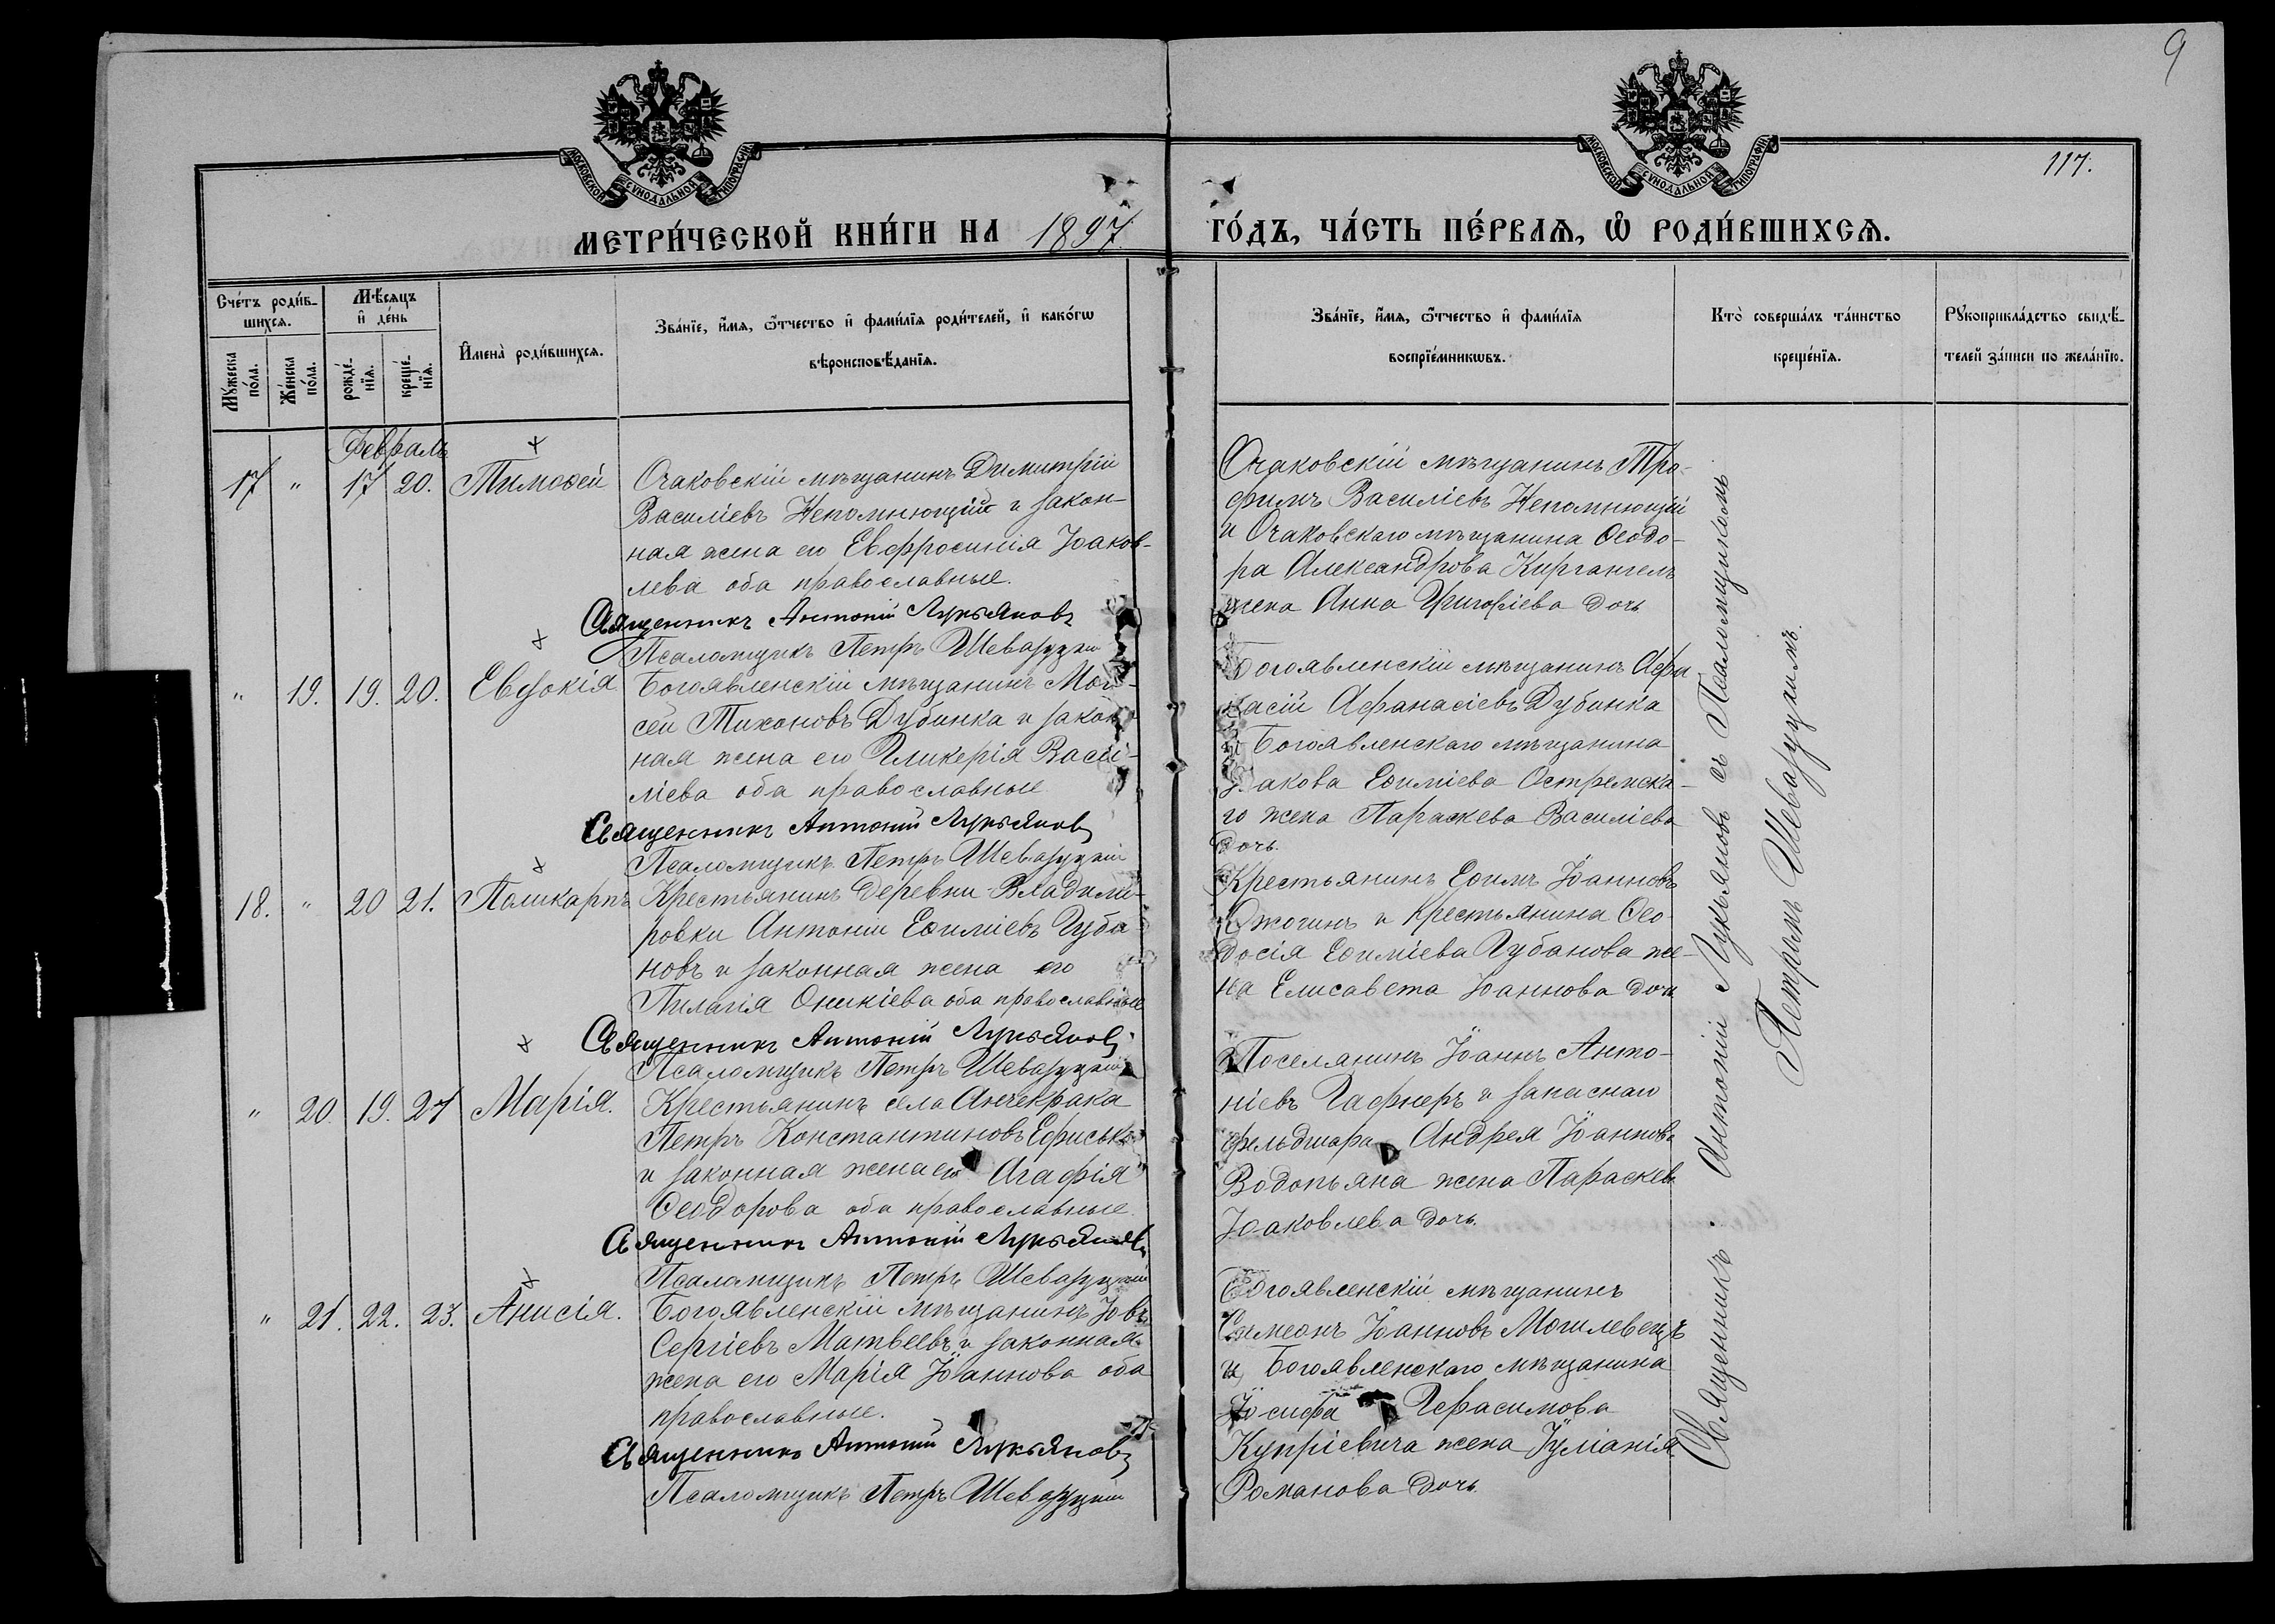 9
117.
МОСКОВСКОЙ СѴНОДАЛЬНОЙ ТИПОГРАФІИ
МОСКОВСКОЙ СѴНОДАЛЬНОЙ ТИПОГРАФІИ
МЕТРИ́ЧЕСКОЙ КНИ́ГИ НА 1897 ГО́ДЪ, ЧА́СТЬ ПЕ́РВАѦ, Ѡ РОДИ́ВШИХСѦ.
Сче́тъ роди́в-
шихсѧ.
Мꙋ́жеска по́ла.
Же́нска по́ла.
Мѣ́сѧцъ
и҆ де́нь
рожде́-
нїѧ.
креще́-
нїѧ.
И҆мена̀ роди́вшихсѧ.
Зва́нїе, и҆́мѧ, ѻ҆́тчество и҆ фами́лїѧ роди́телей, и҆ како́гѡ
вѣроисповѣ́данїѧ.
Зва́нїе, и҆́мѧ, ѻ҆́тчество и҆ фами́лїѧ
воспрїе́мникѡвъ.
Кто̀ соверша́лъ та́инство
креще́нїѧ.
Рꙋкоприкла́дство свидѣ́-
телей за́писи по жела́нїю.
Февраль
17 " 17 20. Тимоѳей
Очаковскій мѣщанинъ Димитрій
Василіевъ Непомнющій и закон-
ная жена его Евфросинія Іаков-
лева оба православные.
Священникъ Антоній Лукьяновъ
Псаломщикъ Петръ Шевазуцкій
Очаковскій мѣщанинъ Тро-
фимъ Василіевъ Непомнющій
и Очаковскаго мѣщанина Ѳеодо-
ра Александрова Киргангелъ
жена Анна Григоріева дочь
" 19. 19. 20. Евдокія
Богоявленскій мѣщанинъ Мои-
сей Тихоновъ Дубинка и закон-
ная жена его Гликерія Васи-
ліева оба православные
Священникъ Антоній Лукьяновъ
Псаломщикъ Петръ Шевазуцкій
Богоявленскій мѣщанинъ Афа-
насій Афанасіевъ Дубинка
и Богоявленскаго мѣщанина
Іакова Евѳиміева Остремска-
го жена Параскева Василіева
дочь.
18. " 20 21. Поликарпъ
Крестьянинъ деревни Владими-
ровки Антоній Еѳиміевъ Губа-
новъ и законная жена его
Пилагія Оникіева оба православные
Священникъ Антоній Лукьяновъ
Псаломщикъ Петръ Шевазуцкій
Крестьянинъ Еѳимъ Іоанновъ
Ожогинъ и Крестьянина Ѳео-
досія Еѳиміева Губанова же-
на Елисавета Іоаннова дочь
" 20. 19. 27 Марія.
Крестьянинъ села Анчекрака
Петръ Константиновъ
и законная жена его Агафія
Ѳеодорова оба православные.
Священникъ Антоній Лукьяновъ
Псаломщикъ Петръ Шевазуцкій
Поселянинъ Іоаннъ Анто-
ніевъ Гафнеръ и запаснаго
фельдшера Андрея Іоаннова
Водопьяна жена Параскева
Іаковлева дочь.
" 21. 22. 23. Анисія.
Богоявленскій мѣщанинъ Іовъ
Сергіевъ Матвеевъ и законная
жена его Марія Іоаннова оба
православные.
Священникъ Антоній Лукьяновъ
Псаломщикъ Петръ Шевазуцкій
Богоявленскій мѣщанинъ
Симеонъ Іоанновъ Могилевецъ
и Богоявленскаго мѣщанина
Іосифа Герасимова
Купріевича жена Іуліанія
Романова дочь.
Священникъ Антоній Лукьяновъ съ Псаломщикомъ
Петромъ Шевазуцкимъ.